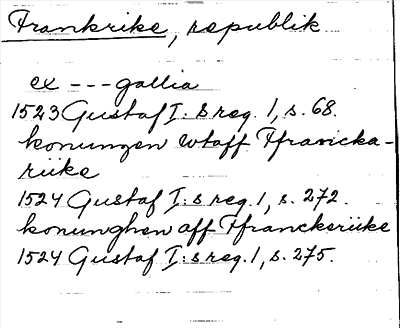 Frankrike, republik
ex --- gallia
1523 Gustaf I:s reg. 1, s. 68.
konungen wtaff Ffranicka-
riike
1524 Gustaf I:s reg. 1, s. 272.
konunghen aff Ffranckeriike
1524 Gustaf I:s reg. 1, s. 275.